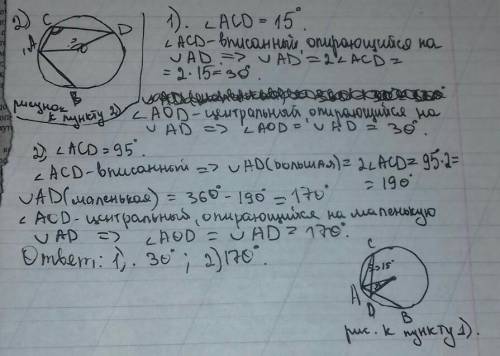 2)
C
D
A
?
O
B
рисунок
к пункту 2)
1). ∠ACD = 15°.
∠ACD - вписанный, опирающийся на
∪AD. => ∪AD = 2∠ACD =
= 2·15 = 30°.
∠AOD - центральный, опирающийся на
∪AD => ∠AOD = ∪AD = 30°.
2) ∠ACD = 95°.
∠ACD - вписанный => ∪AD (большая) = 2∠ACD = 95·2 =
= 190°
∪AD (маленькая) = 360° - 190° = 170°
∠AOD - центральный, опирающийся на маленькую
∪AD => ∠AOD = ∪AD = 170°.
Ответ: 1). 30°; 2) 170°.
C
15°
A
D
B
рис. к пункту 1).